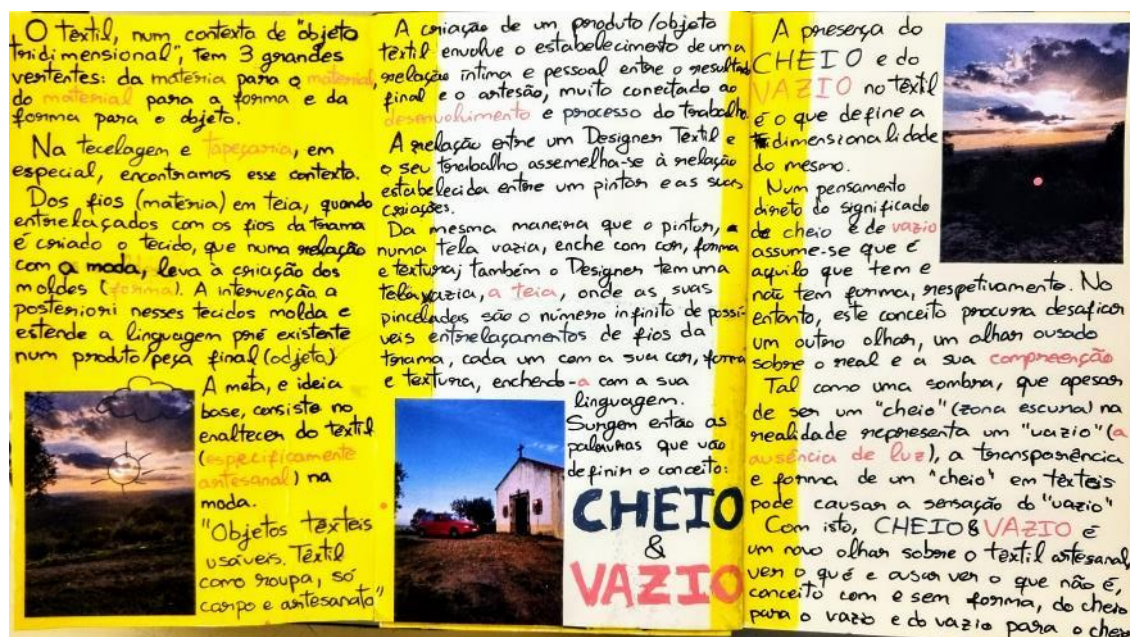 O têxtil, num contexto de "objeto
tridimensional", tem 3 grandes
vertentes: da matéria para o material,
do material para a forma e da
forma para o objeto.
Na tecelagem e tapeçaria, em
especial, encontramos esse contexto.
Dos fios (matéria) em teia, quando
entrelaçados com os fios da trama
é criado o tecido, que numa relação
com a moda, leva à criação dos
moldes (forma). A intervenção a
posteriori nesses tecidos molda e
estende a linguagem pré existente
num produto/peça final (odjeto)
A meta, e ideia
base, consiste no
enaltecer do têxtil
(especificamente
artesanal) na
moda.
"Objetos têxteis
usáveis. Têxtil
como roupa, só
corpo e artesanato"
A criação de um produto/objeto
têxtil envolve o estabelecimento de uma
relação íntima e pessoal entre o resultado
final e o artesão, muito conectado ao
desenvolvimento e processo do trabalho.
A relação entre um Designer Têxtil e
o seu trabalho assemelha-se à relação
estabelecida entre um pintor e as suas
criações.
Da mesma maneira que o pintor,
numa tela vazia, enche com cor, forma
e textura; também o Designer tem uma
tela vazia, a teia, onde as suas
pinceladas são o número infinito de possí-
veis entrelaçamentos de fios da
trama, cada um com a sua cor, forma
e textura, enchendo-a com a sua
linguagem.
Surgem então as
palavras que vão
definir o conceito:
CHEIO
&
VAZIO
A presença do
CHEIO e do
VAZIO no têxtil
é o que define a
tridimensionalidade
do mesmo.
Num pensamento
direto do significado
de cheio e de vazio
assume-se que é
aquilo que tem e
não tem forma, respetivamente. No
entanto, este conceito procura desafiar
um outro olhar, um olhar ousado
sobre o real e a sua compreenção
Tal como uma sombra, que apesar
de ser um "cheio" (zona escura) na
realidade representa um "vazio" (a
ausência de luz), a transparência
e forma de um "cheio" em têxteis
pode causar a sensação do "vazio"
Com isto, CHEIO & VAZIO é
um novo olhar sobre o têxtil artesanal,
ver o que é e ousar ver o que não é,
conceito com e sem forma, do cheio
para o vazio e do vazio para o